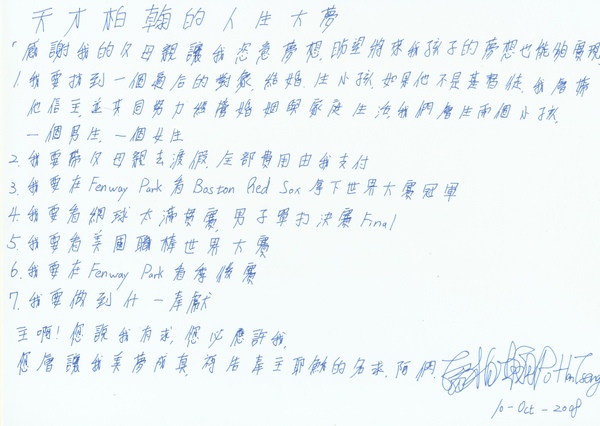 天才柏翰的人生大夢
「感謝我的父母親讓我恣意夢想,盼望將來我孩子的夢想也能夠實現
1. 我要找到一個最后的對象,結婚.生小孩.如果他不是基督徒.我會帶
他信主,並共同努力經營婚姻與家庭生活.我們會生兩個小孩.
一個男生.一個女生
2. 我要帶父母親去渡假,全部費用由我支付
3. 我要在Fenway Park看Boston Red Sox拿下世界大賽冠軍
4. 我要看網球大滿貫賽,男子單打決賽Final
5. 我要看美國職棒世界大賽
6. 我要在Fenway Park看季後賽
7. 我要做到什一奉獻
主啊!您說我有求,您必應許我.
您會讓我美夢成真,禱告奉主耶穌的名求.阿們.
10-Oct-2008